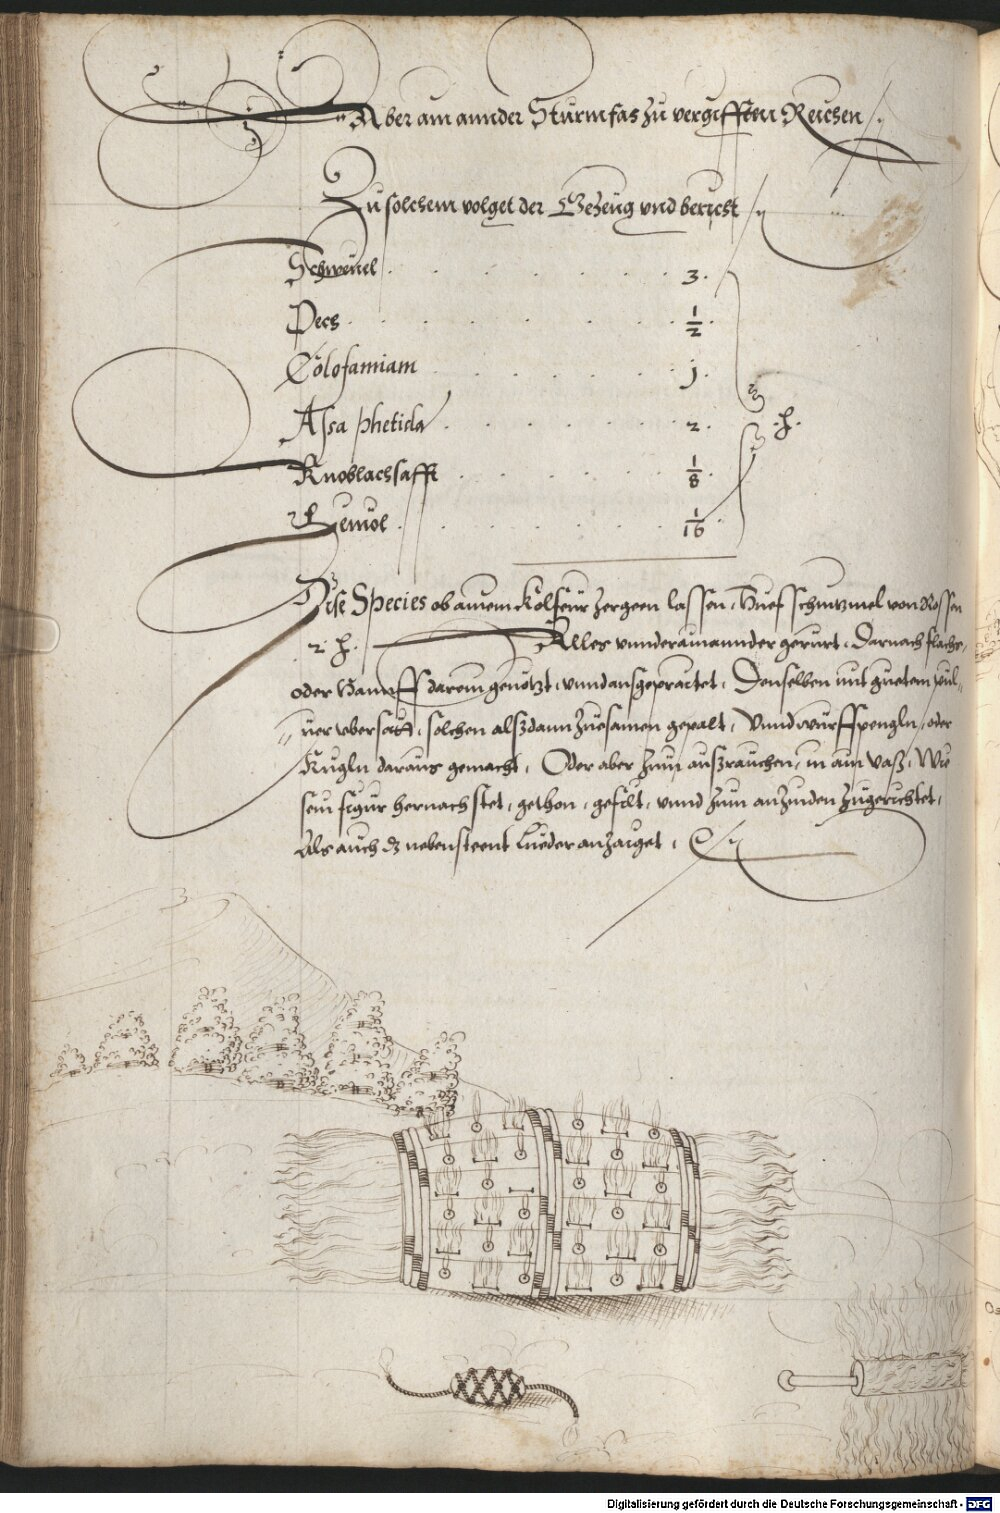 Aber ain annder Sturmfas zu vergifften Reuchen
Zu solchem volget der Gezeüg vnd bericht
Schweuel . . . . . . . 3.
Pech . . . . . . . 1/2.
Colofaniam . . . . . . j.
Assa phetida . . . . . . 2.
Knoblachsafft . . . . . 1/8.
Lemöl . . . . . . 1/16.
.℔.
Dise Species ob ainem Kolfeür zergeen lassen, Huefschnitzmel von Rossen
2 ℔. Alles vnnderainannder gerürt, Darnach flachs,
oder Hannff darein genötzt, vnnd ausgepraitet, Denselben mit guetem pul„
„uer vbersätt, solchen alszdann zuesamen gepalt, Vnnd wurffpengln, oder
Kugln daraus gemacht, Oder aber zum auszrauchen, in ain Vasz, Wie
sein figur hernach stet, gethon, gefilt, vnnd zum anzünden zugerichtet,
Als auch dz nebensteent Lueder anzaiget,
Digitalisierung gefördert durch die Deutsche Forschungsgemeinschaft - DFG